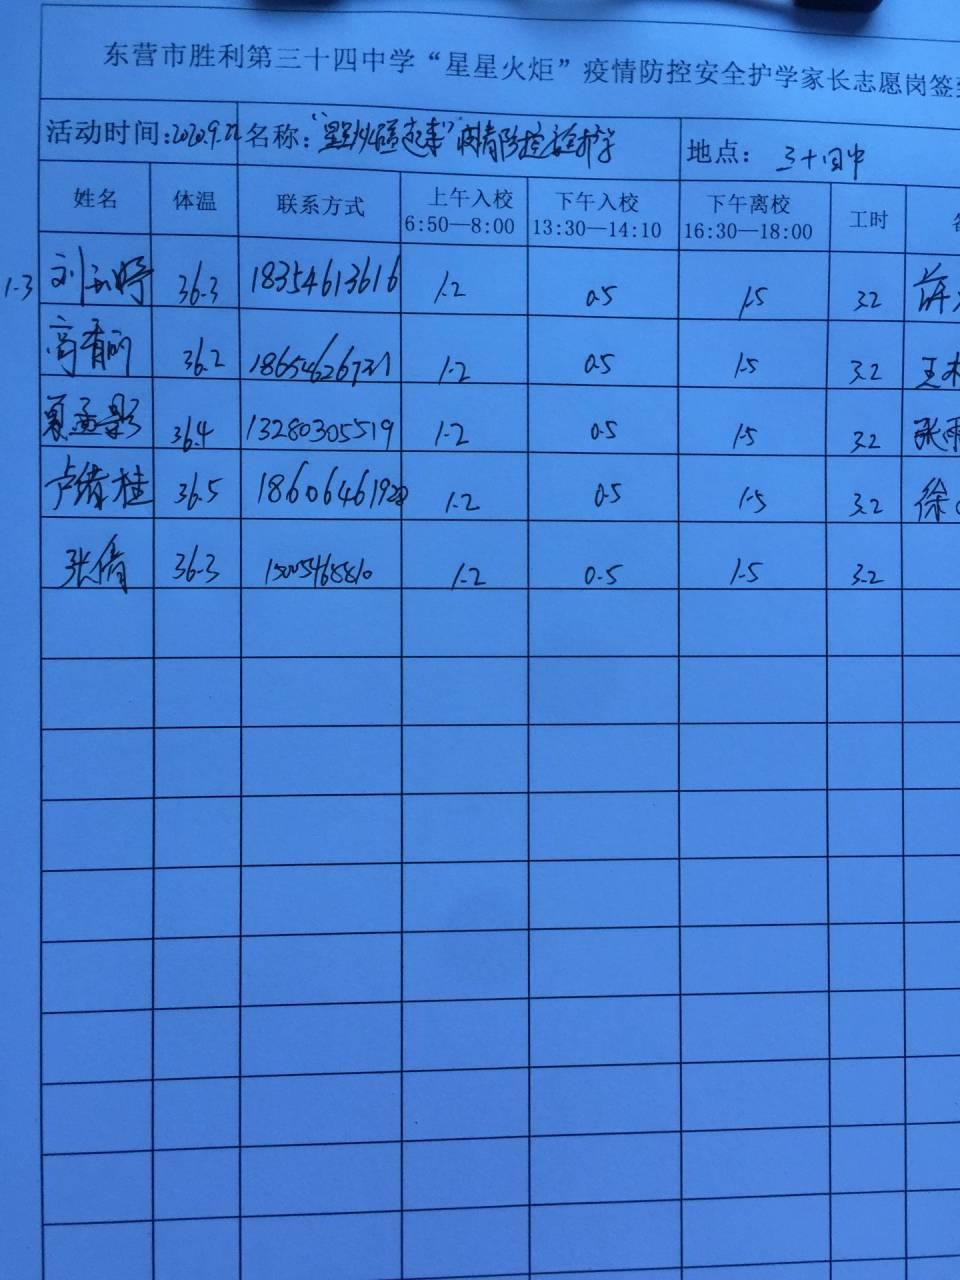 东营市胜利第三十四中学“星星火炬”疫情防控安全护学家长志愿岗签到
活动时间:2020.9.22 名称: 疫情防控安全护学 地点: 三十四中
姓名 体温 联系方式 上午入校 6:50—8:00 下午入校 13:30—14:10 下午离校 16:30—18:00 工时
1-3 刘 36.3 18354613616 1.2 0.5 1.5 3.2 薛
高 36.2 1.2 0.5 1.5 3.2 王
夏孟影 36.4 13280305519 1.2 0.5 1.5 3.2 张雨
卢绪桂 36.5 1.2 0.5 1.5 3.2 徐
张倩 36.3 15005468810 1.2 0.5 1.5 3.2